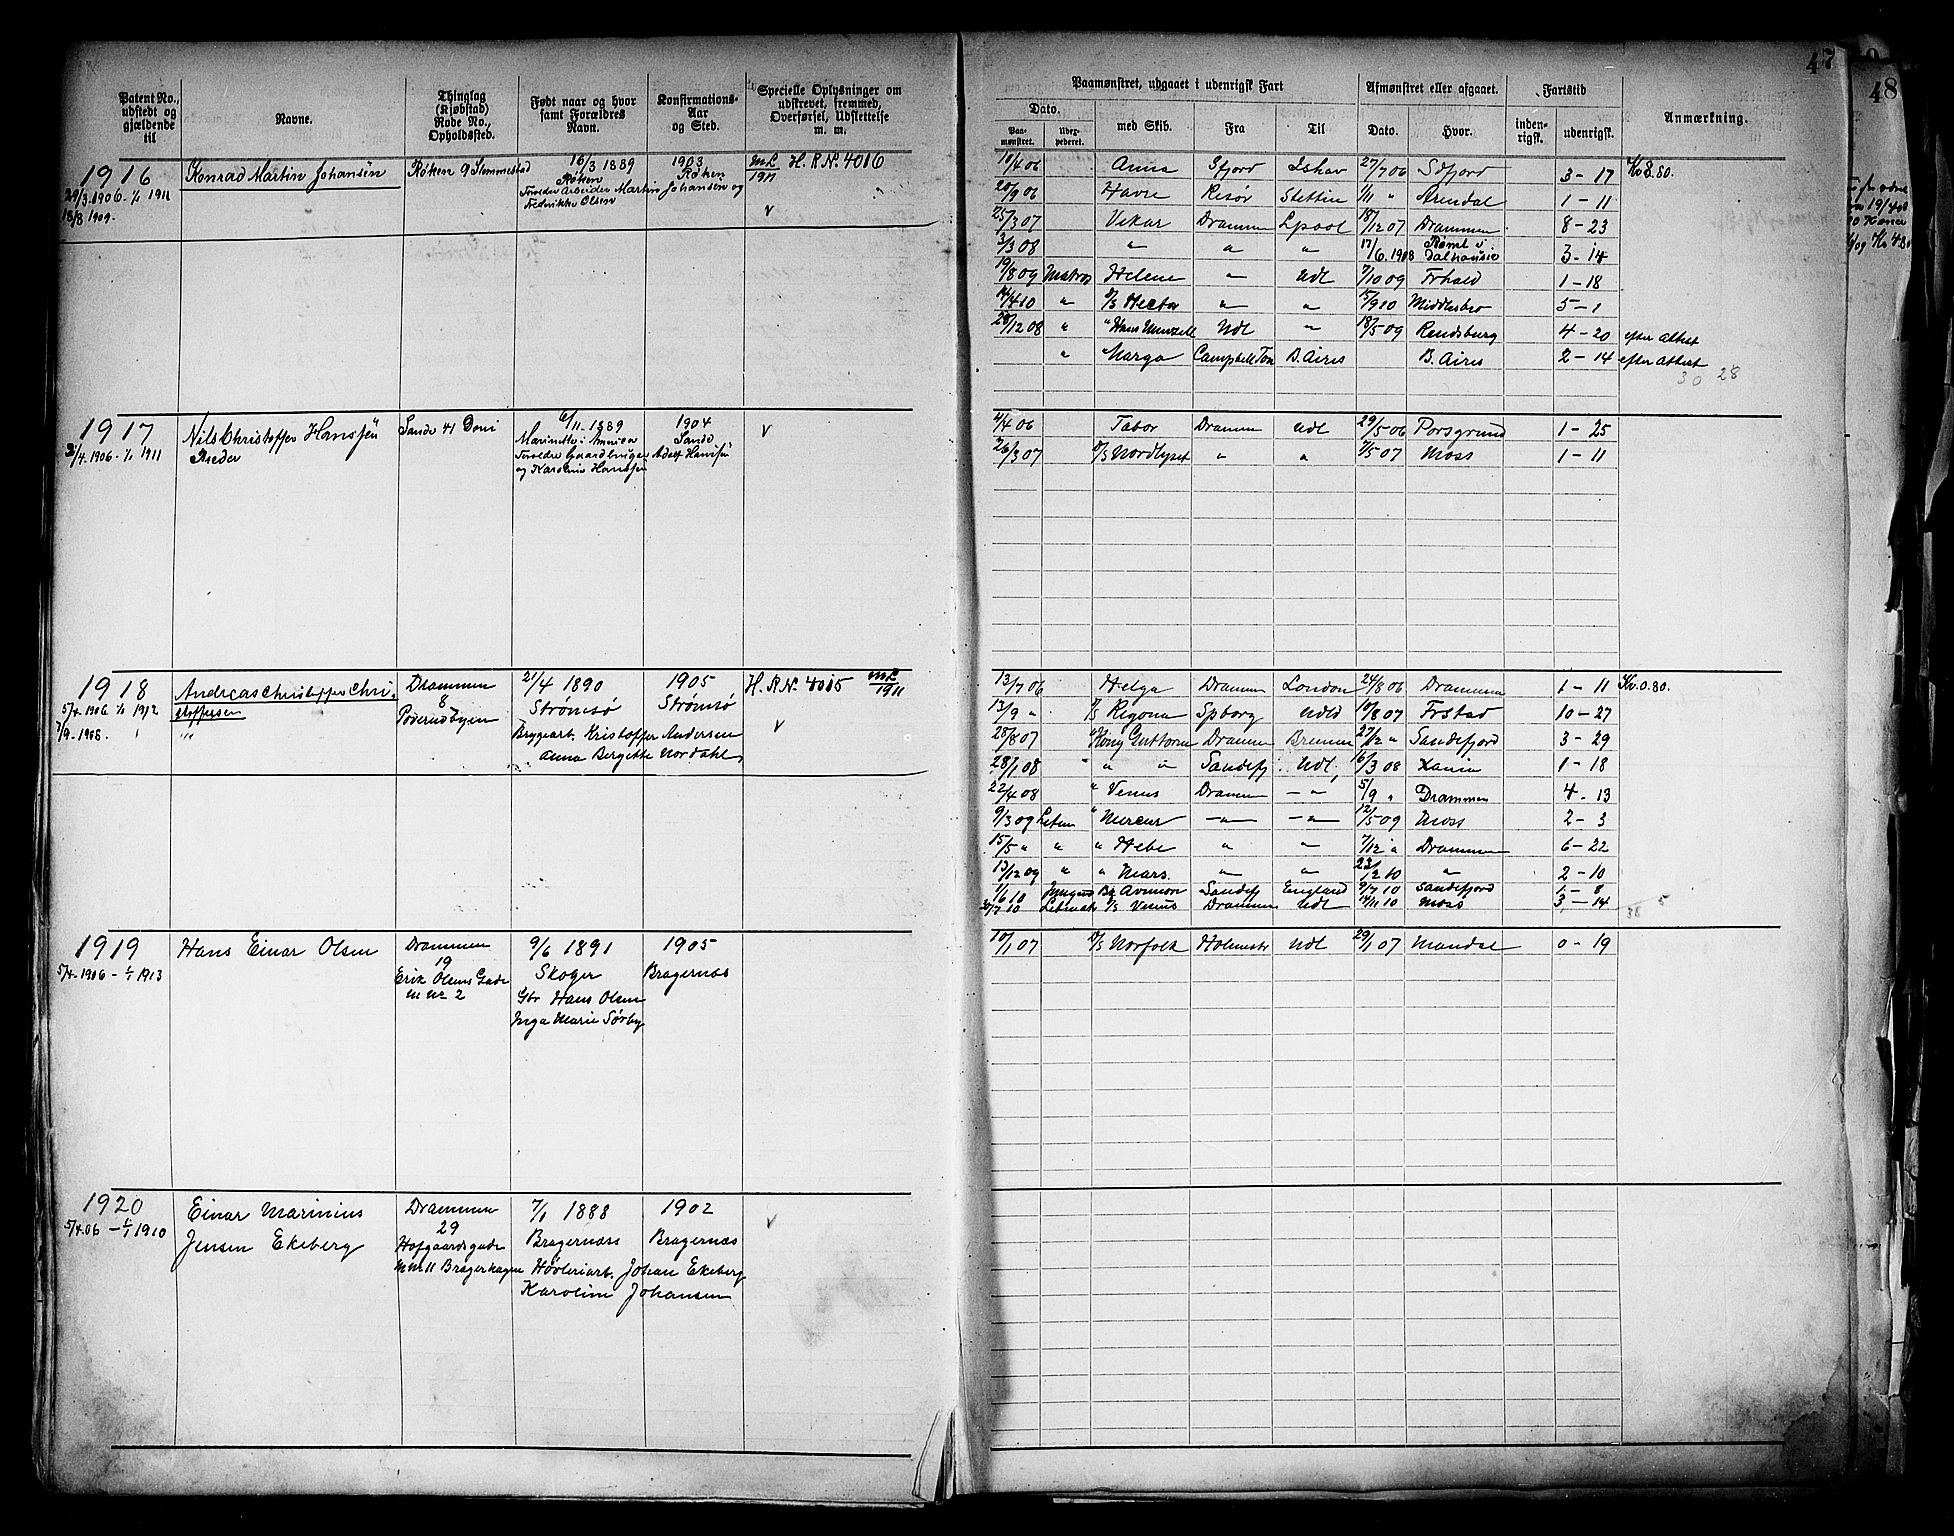 47
48
Patent No., udstedt og gjældende til
Navne.
Thinglag (Kjøbstad) Rode No., Opholdssted.
Født naar og hvor samt Forældres Navn.
Konfirmations-Aar og Sted.
Specielle Oplysninger om udskrevet, fremmed, Overførsel, Udslettelse m. m.
Paamønstret, udgaaet i udenrigsk Fart
Afmønstret eller afgaaet.
Fartstid
Anmærkning.
Dato.
Paa-mønstret.
med Skib.
Fra
Til
Dato.
Hvor.
inden-rigsk.
udenrigsk.
1916
29/3.1906 - 1/1 1911
13/8 1909.
Konrad Martin Johansen
Røken 9 Slemmestad
16/3 1889
Røken
Forældre Arbeider Martin Johansen og
Fredrikke Olsen
1903
Røken
ML/1911 H. R. No. 4016
v
10/4 06 Anna Sfjord Ishav 27/7 06 Sdfjord 3 - 17 Kr 8.80.
20/9 06 Havre Risør Stettin 1/11 " Arendal 1 - 11
25/3 07 Vikar Drammen Lpool 18/12 07 Drammen 8 - 23
3/3 08 " " " 17/6. 1908 Rømt i Dalhousie 3 - 14
19/8 09 Matros Helene " Udl 7/10 09 Frhald 1 - 18
14/4 10 " D/S Hector " " 15/9 10 Middlesbro 5 - 1
28/12 08 " " Hans Menzell Udl " 18/5 09 Rendsburg 4 - 20 efter Attest
" " Marga Campbell Ton B. Aires B. Aires 2 - 14 efter Attest
30 28
1917
3/4. 1906 - 1/1 1911
Nils Christoffer Hanssen
Sande 41
6/11 - 1889
1904
Sande
og Karoline Hanssen
v
4/4 06 Tabor Drammen Udl 29/5 06 Porsgrund 1 - 25
26/3 07 D/S Nordlyset " " 7/5 07 Moss 1 - 11
1918
5/4. 1906 1/1 1912
7/9 - 1908.
Andreas Christoffer Chri-
stoffersen
Drammen
8
21/4 1890
Strømsø
Bryggearb. Kristoffer Andersen
Anna Bergitte Nordahl
1905
Strømsø
H. R. No. 4015 ML/1911
v
13/7 06 Helga Drammen London 24/8 06 Drammen 1 - 11 Kr. 0.80.
13/9 " D/S Regona Spborg Udld 10/8 07 Frstad 10 - 27
28/8 07 " Kong Guttorm Drammen Bremen 27/12 " Sandefjord 3 - 29
28/1 08 " " " Sandefj. Udl. 16/3 08 Xania 1 - 18
22/4 08 " Venus Drammen - " - 5/9 " Drammen 4 - 13
9/3 09 Letm " Mercur - " - - " - 12/5 09 Moss 2 - 3
15/5 " " " Hebe " " 7/12 " Drammen 6 - 22
13/12 09 " " Mars. " " 23/2 10 " 2 - 10
1/6 10 Jungmd Br Avenor Sandefj England 9/7 10 Sandefjord 1 - 8
30/7 10 Letmatr D/S Venus Drammen Udl 14/11 10 Moss 3 - 14
38 5
1919
5/4 - 1906 - 1/1 1913
Hans Einar Olsen
Drammen
19
Erik Olsens Gade
m nr 2
9/6 1891
Skoger
Gbr Hans Olsen
Inga Marie Sørby
1905
Bragernæs
10/1 07 D/S Norfolk Holmestr Udl 29/1 07 Mandal 0 - 19
1920
5/4.06 - 1/1 1910
Einar Marinius
Jensen Ekeberg
Drammen
29
Hofgaardsgade
m nr 11 Bragerhagen
7/1 1888
Bragernæs
Høvleriarb. Johan Ekeberg
Karoline Johansen
1902
Bragernæs
v